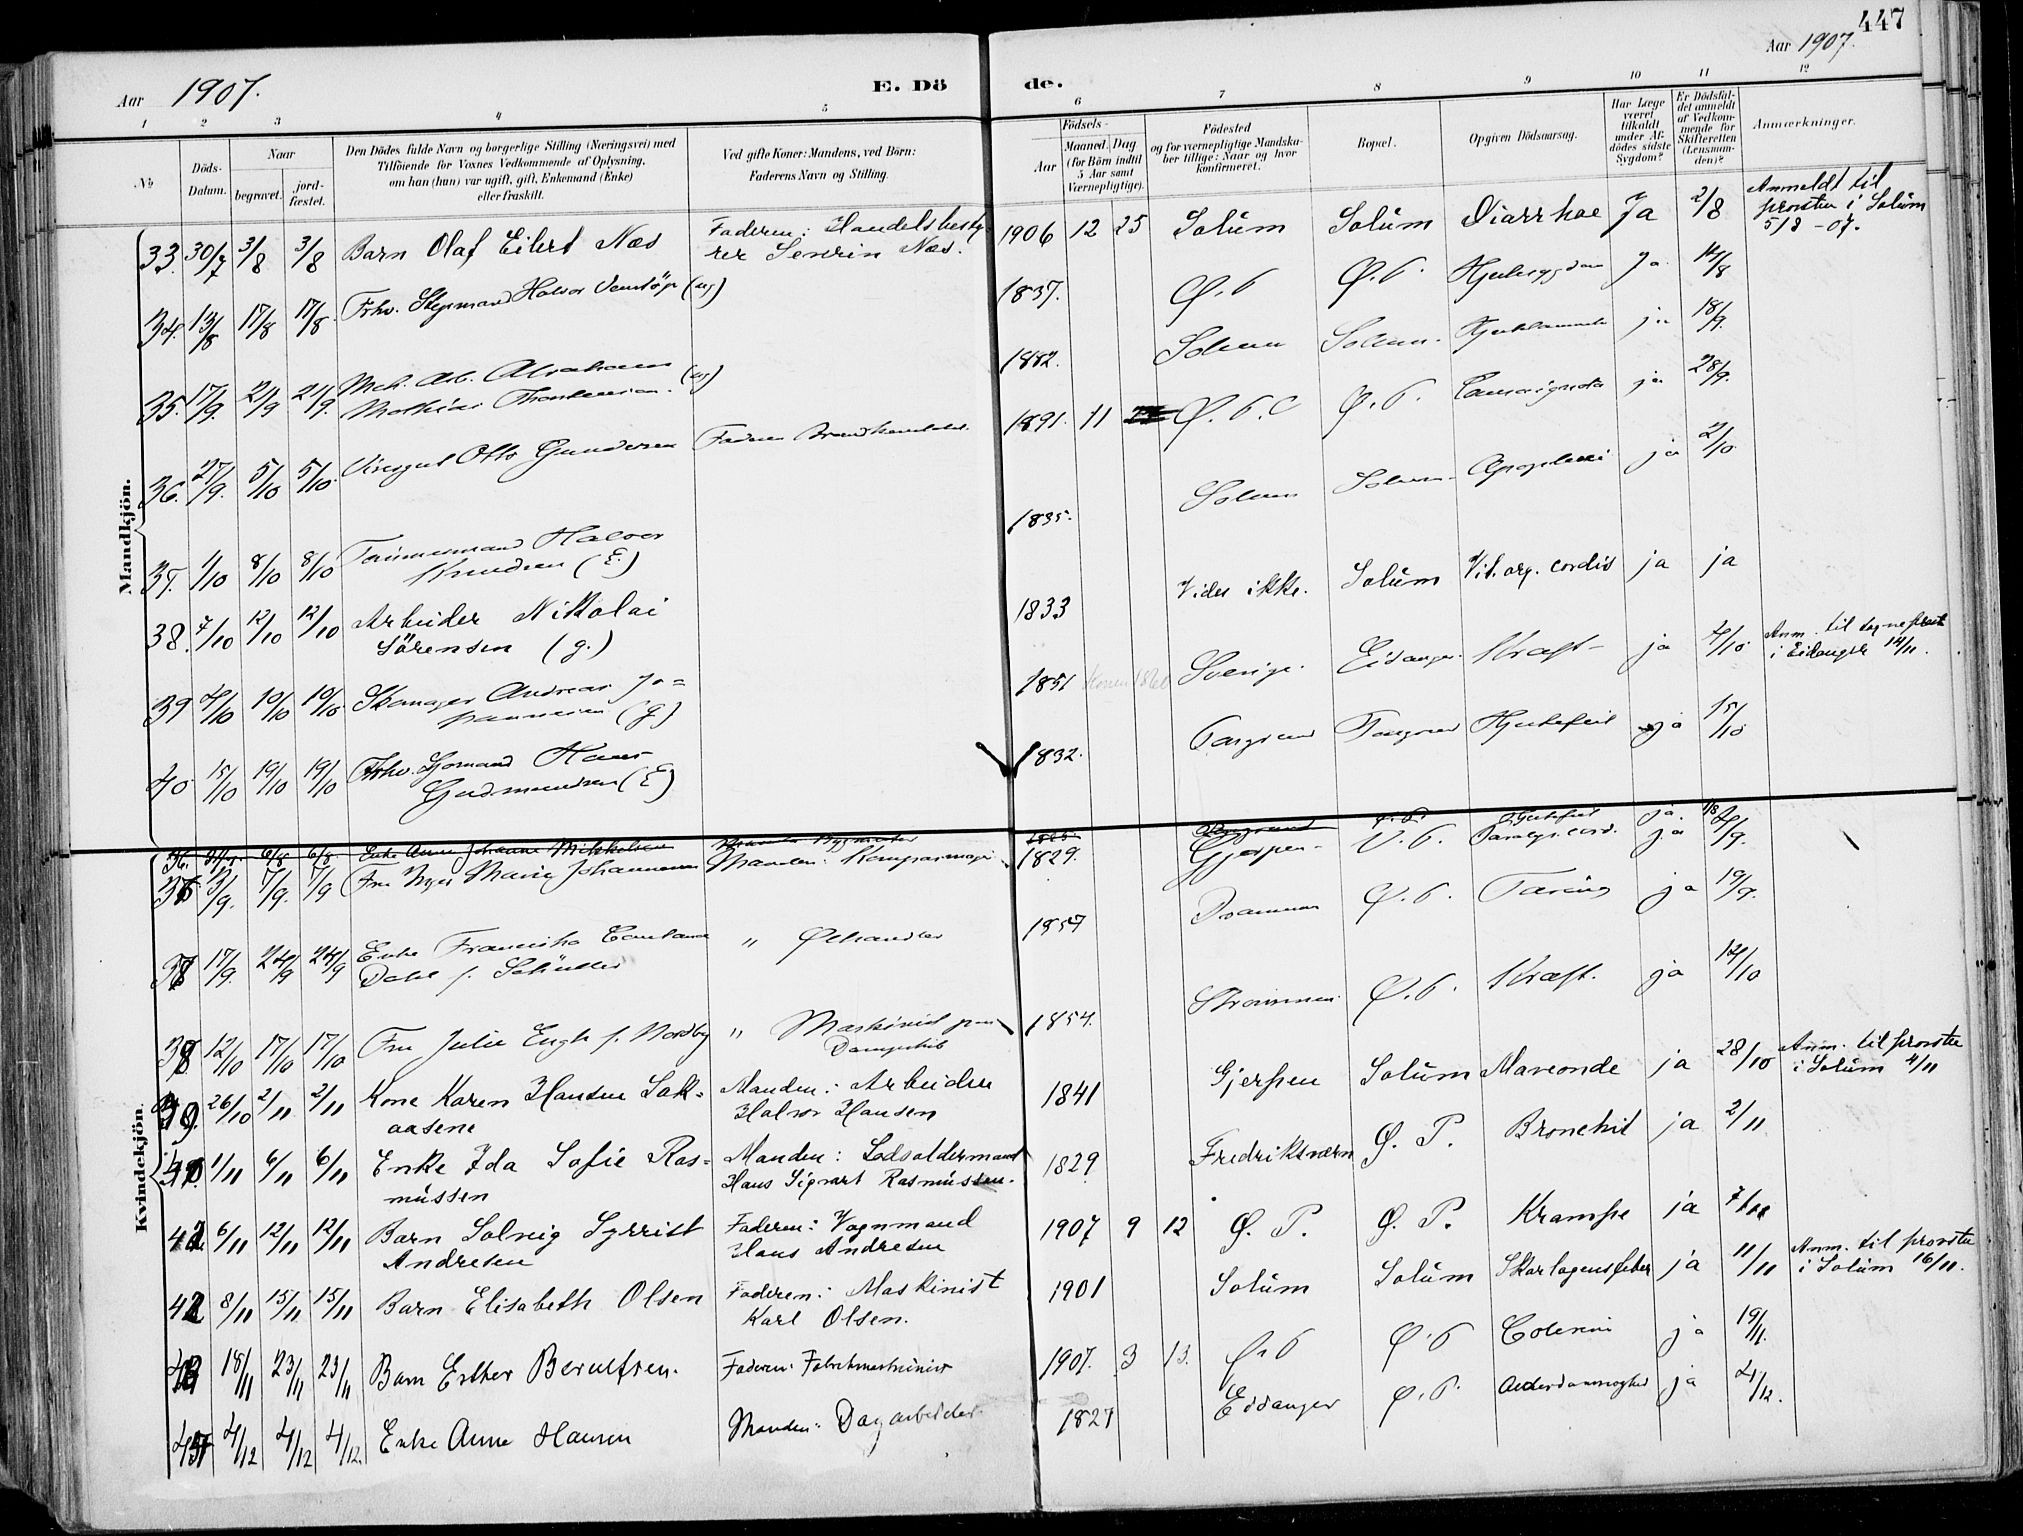 447
Aar 1907.
E. Dö de.
Aar 1907.
1 2 3 4 5 6 7 8 9 10 11 12
№
Döds-Datum.
Naar
begravet.
jord-fæstet.
Den Dödes fulde Navn og borgerlige Stilling (Næringsvei) med
Tilföiende for Voxnes Vedkommende af Oplysning,
om han (hun) var ugift, gift, Enkemand (Enke)
eller fraskilt.
Ved gifte Koner: Mandens, ved Börn:
Faderens Navn og Stilling.
Födsels-
Aar
Maaned. Dag
(for Börn indtil
5 Aar samt
Værnepligtige).
Födested
og for værnepligtige Mandska-
ber tillige: Naar og hvor
konfirmeret.
Bopæl.
Opgiven Dödsaarsag.
Har Læge
været
tilkaldt
under Af-
dödes sidste
Sygdom?
Er Dödsfal-
det anmeldt
af Vedkom-
mende for
Skifteretten
(Lensman-
den)?
Anmærkninger.
Mandkjön.
33. 30/7 3/8 3/8 Barn Olaf Eilert Næs Faderen: Handelsbesty-
rer Severin Næs. 1906 12 25 Solum Solum Diarrhoe Ja 2/8 Anmeldt til
provsten i Solum
5/8 -07.
34. 13/8 17/8 17/8 Frhv. Halvor (ug) 1837. Ø.P. Ø.P. Hjertesygdom Ja 14/8
35. 17/9. 21/9 21/9. Mek. Arb. Abraham
Mathias (ug) 1882. Solum Solum. ja 18/9.
36. 27/9. 5/10 5/10. Otto Gundersen Faderen 1891. 11 Ø.P. Ø.P. ja 28/9.
37. 1/10 8/10 8/10 Tømmermand Halvor
Knudsen (E.) 1835. Solum Solum Apoplexi ja 2/10
38. 7/10 12/10 12/10 Arbeider Nikolai
Sörensen (g.) 1833 Vides ikke. Solum Vit. org. cordis ja ja
39 4/10 10/10 10/10 Skomager Andreas Jo=
hannesen (g) 1851 Sverige. Eidanger. Kræft ja 4/10 Anm. til sogneprest
i Eidanger 14/11.
40 15/10 19/10 19/10 Frhv. Sjømand Hans
Gudmundsen (E) 1832. Porsgrund Porsgrund Hjertefeil ja 15/10
Kvindekjön.
36. 6/8. 6/8. Enke Anne Johanne Mikkelsen Porsgrund Hjertefeil ja.
36 3/9. 7/9. 7/9 Fru Inger Marie Johannesen Manden: 1829. Gjerpen Ø.P. Paralys. cord. ja 4/9.
37 17/9. 24/9 24/9 Enke Dahl f. " Ølhandler 1857 Drammen Ø.P. ja 19/9.
38 12/10 17/10 17/10 Fru Julie Engh f. Nordby " Maskinist paa
Dampskib 1854. Strømmen Ø.P. Kræft. ja 12/10
39. 26/10 2/11 2/11 Kone Karen Hansen Lak=
aasene Manden: Arbeider
Halvor Hansen 1841 Gjerpen Solum Maveonde ja 28/10 Anm. til provsten
i Solum 4/11
40 1/11 6/11 6/11 Enke Ida Sofie Ras=
mussen Manden: Lodsoldermand
Hans Sigvart Rasmussen. 1829 Fredriksværn Ø. P. Bronchit ja 2/11
41 6/11 12/11 12/11 Barn Solveig Syrrist
Andresen Faderen: Vognmand
Hans Andresen 1907 9 12 Ø. P. Ø. P. Krampe ja 7/11
42 8/11 15/11 15/11 Barn Elisabeth Olsen Faderen: Maskinist
Karl Olsen. 1901 Solum Solum Skarlagensfeber ja 11/11 Anm. til provsten
i Solum 16/11.
43 18/11 23/11 23/11 Barn Esther Berntsen. Faderen: 1907. 3 13. Ø.P Ø.P ja 19/11.
45 4/12 4/12 4/12. Enke Anne Hansen Manden: Dagarbeider 1827 Eidanger Ø.P. Alderdomssvaghed ja 4/12.